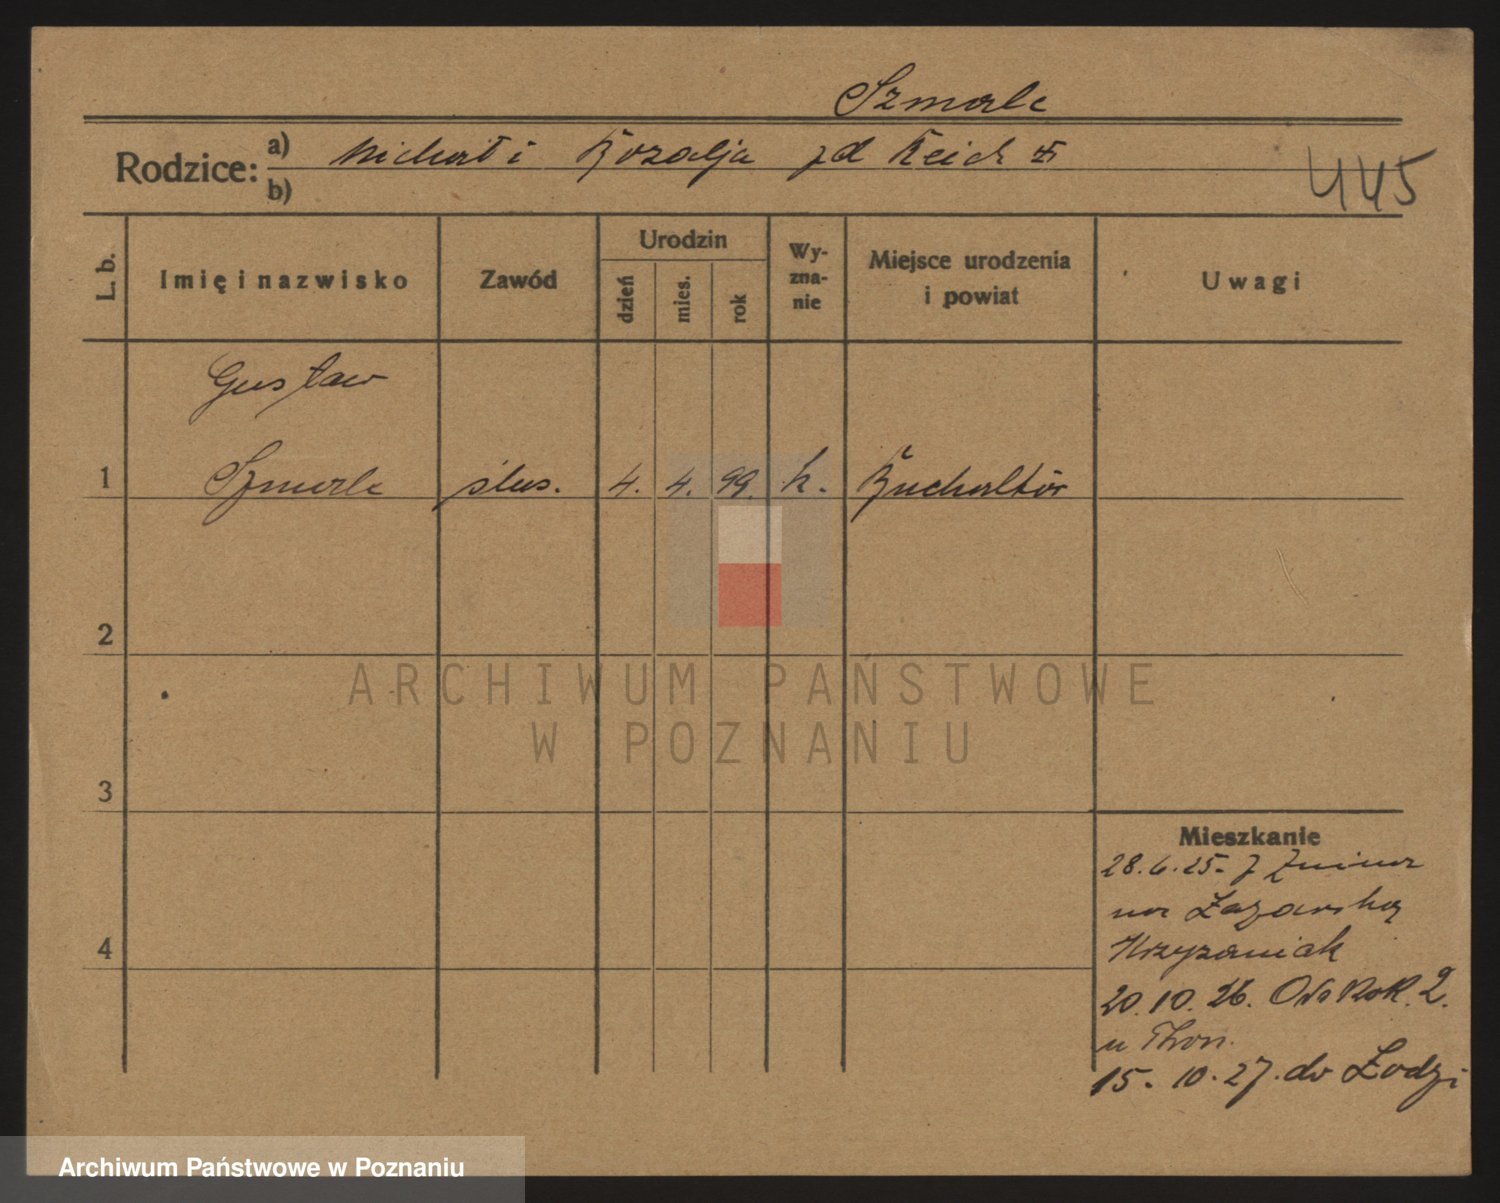 Szmale
Rodzice: a) Michał i Rozalja zd Reich
b)
445
L. b.
Imię i nazwisko
Zawód
Urodzin
dzień
mies.
rok
Wy-
zna-
nie
Miejsce urodzenia
i powiat
Uwagi
Gustaw
1 Szmale ślus. 4. 4. 99. k.
2
3
4
Mieszkanie
28.6.25. z Żnina
na Łazarską
Krzyżaniak
20.10.26.
u Thon.
15.10.27. do Łodzi
ARCHIWUM PAŃSTWOWE
W POZNANIU
Archiwum Państwowe w Poznaniu